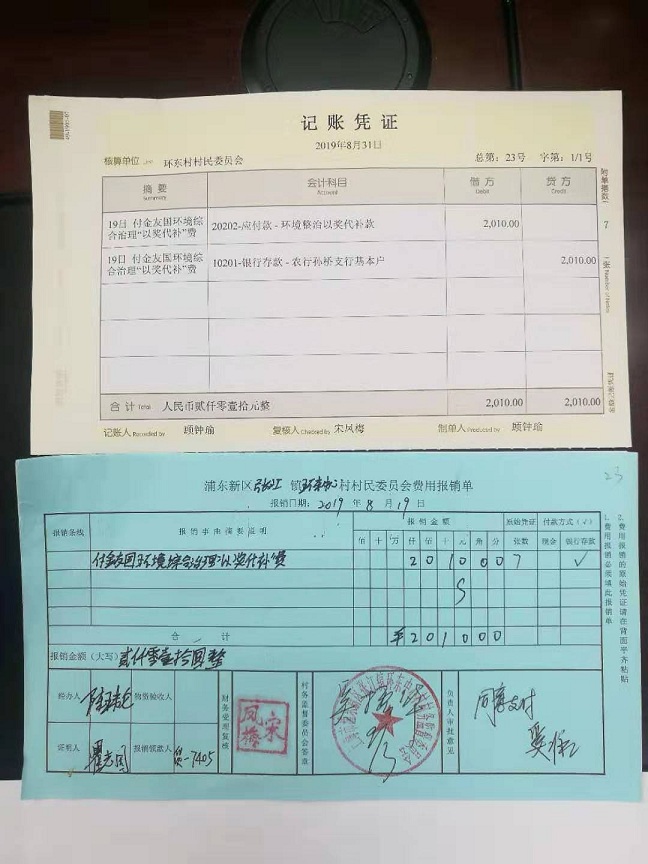 记账凭证
2019年8月31日
核算单位 环东村村民委员会 总第：23号 字第：1/1号
摘要 会计科目 借方 贷方
Summary Account Debit Credit
附单据数 7 张
19日 付金友国环境综合治理“以奖代补”费 20202-应付款-环境整治以奖代补款 2,010.00
19日 付金友国环境综合治理“以奖代补”费 10201-银行存款-农行孙桥支行基本户 2,010.00
合计 Total 人民币贰仟零壹拾元整 2,010.00 2,010.00
记账人 Recorded by 顾钟瑜 复核人 Checked by 宋凤梅 制单人 Produced by 顾钟瑜
23
浦东新区张江镇环东村村民委员会费用报销单
报销日期：2019年8月19日
报销条线 报销事由摘要证明 报销金额 原始凭证 付款方式（√）
佰十万仟佰十元角分 张数 现金 银行存款
付金友国环境综合治理以奖代补费 201000 7 √
合计 ¥201000
报销金额（大写） 贰仟零壹拾圆整
经办人 物资验收人 财务受理复核 宋凤梅 村务监督委员会签章 负责人审批意见 同意支付
证明人 报销领款人 贷-7405
1、费用报销必须填此报销单
2、费用报销的原始凭证请在背面平齐粘贴